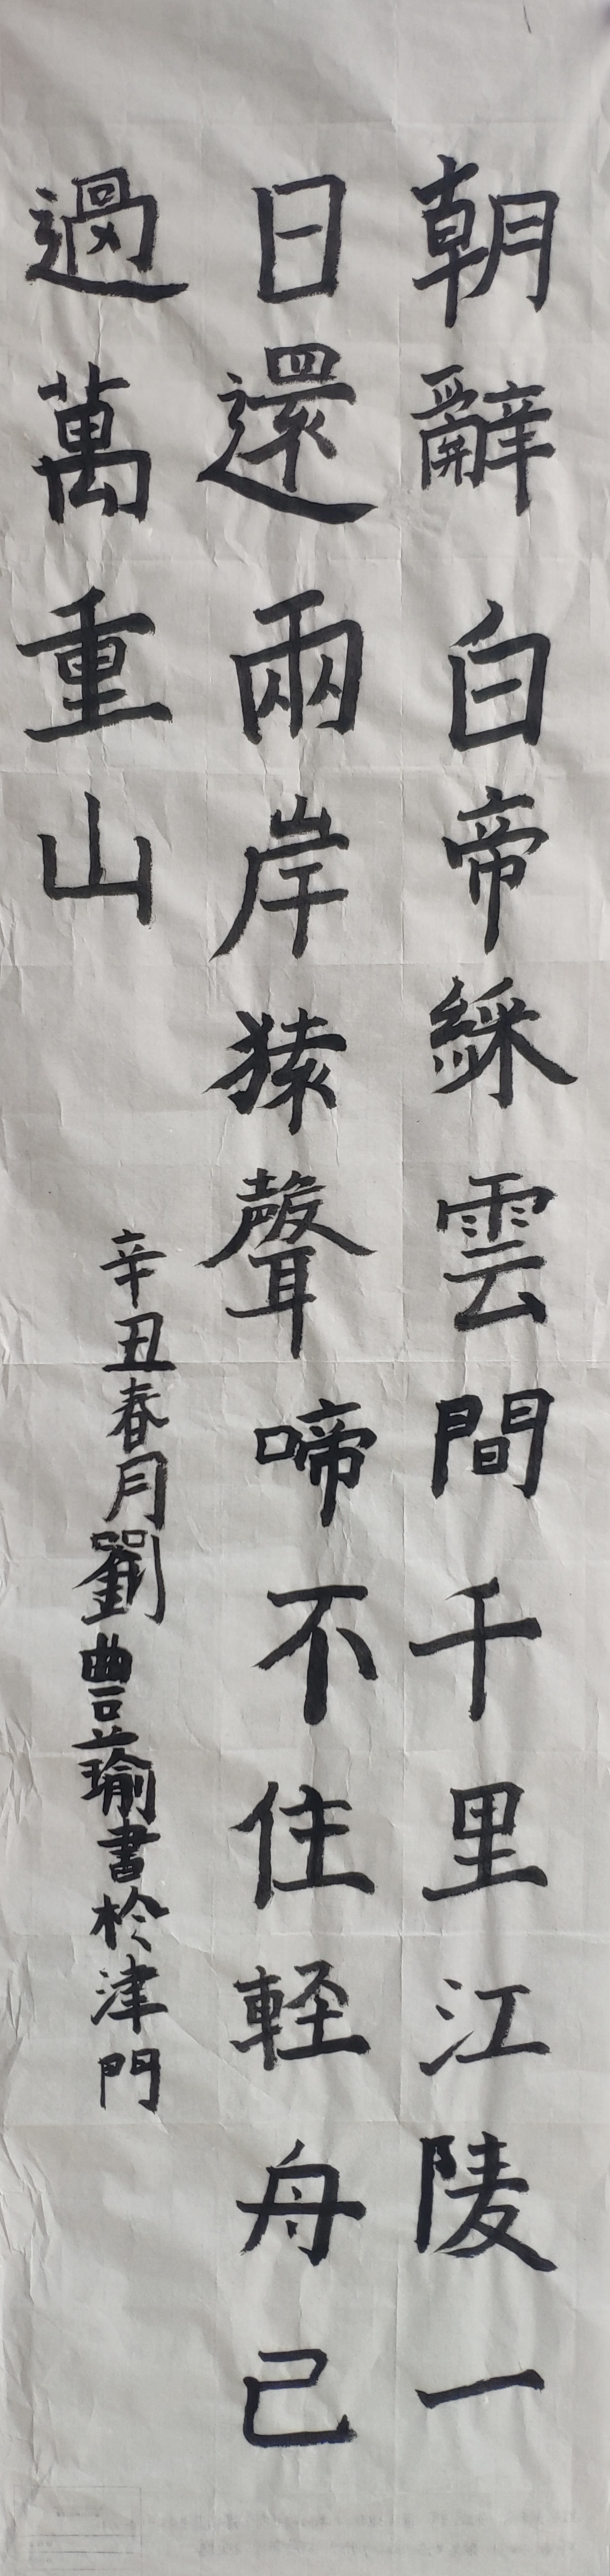 朝辭白帝綵雲間千里江陵一
日還兩岸猿聲啼不住輕舟已
過萬重山
辛丑春月劉豐瑜書於津門